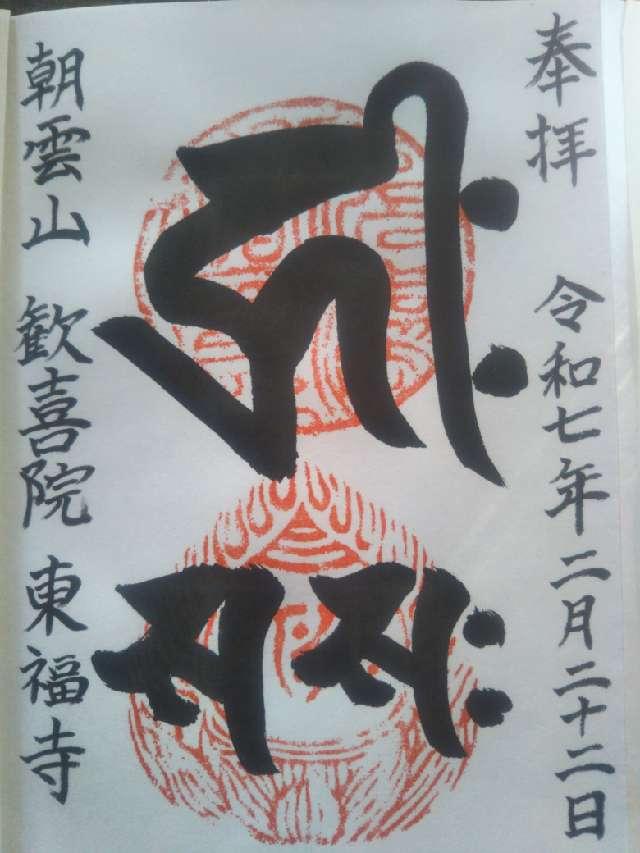 奉拝
令和七年二月二十二日
𑖮𑖿𑖨𑖱𑖾
𑖭 𑖭𑖾
朝雲山 歓喜院 東福寺